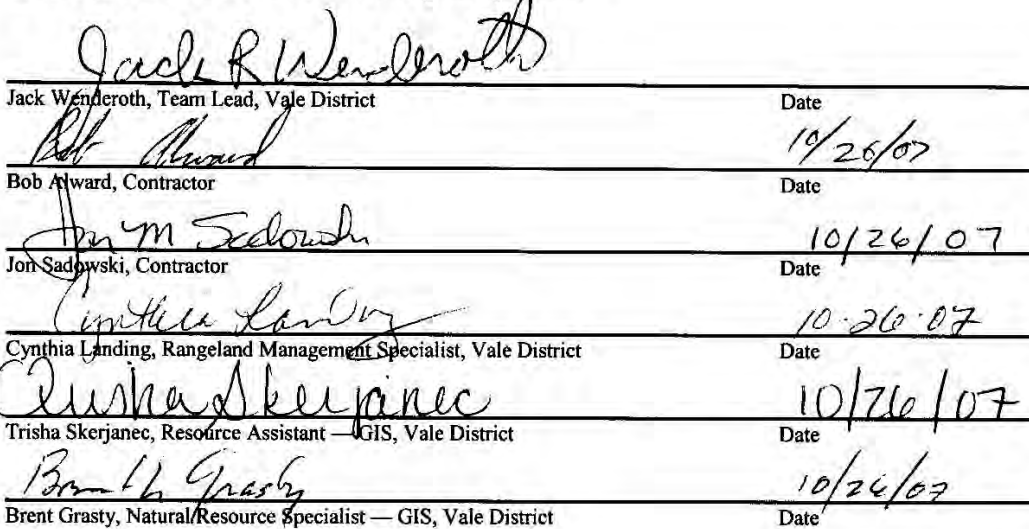 Jack R Wenderoth
Jack Wenderoth, Team Lead, Vale District Date
Bob Alward 10/26/07
Bob Alward, Contractor Date
Jon M Sadowski 10/26/07
Jon Sadowski, Contractor Date
Cynthia Landing 10·26·07
Cynthia Landing, Rangeland Management Specialist, Vale District Date
Trisha Skerjanec 10/26/07
Trisha Skerjanec, Resource Assistant — GIS, Vale District Date
Brent Grasty 10/26/07
Brent Grasty, Natural Resource Specialist — GIS, Vale District Date